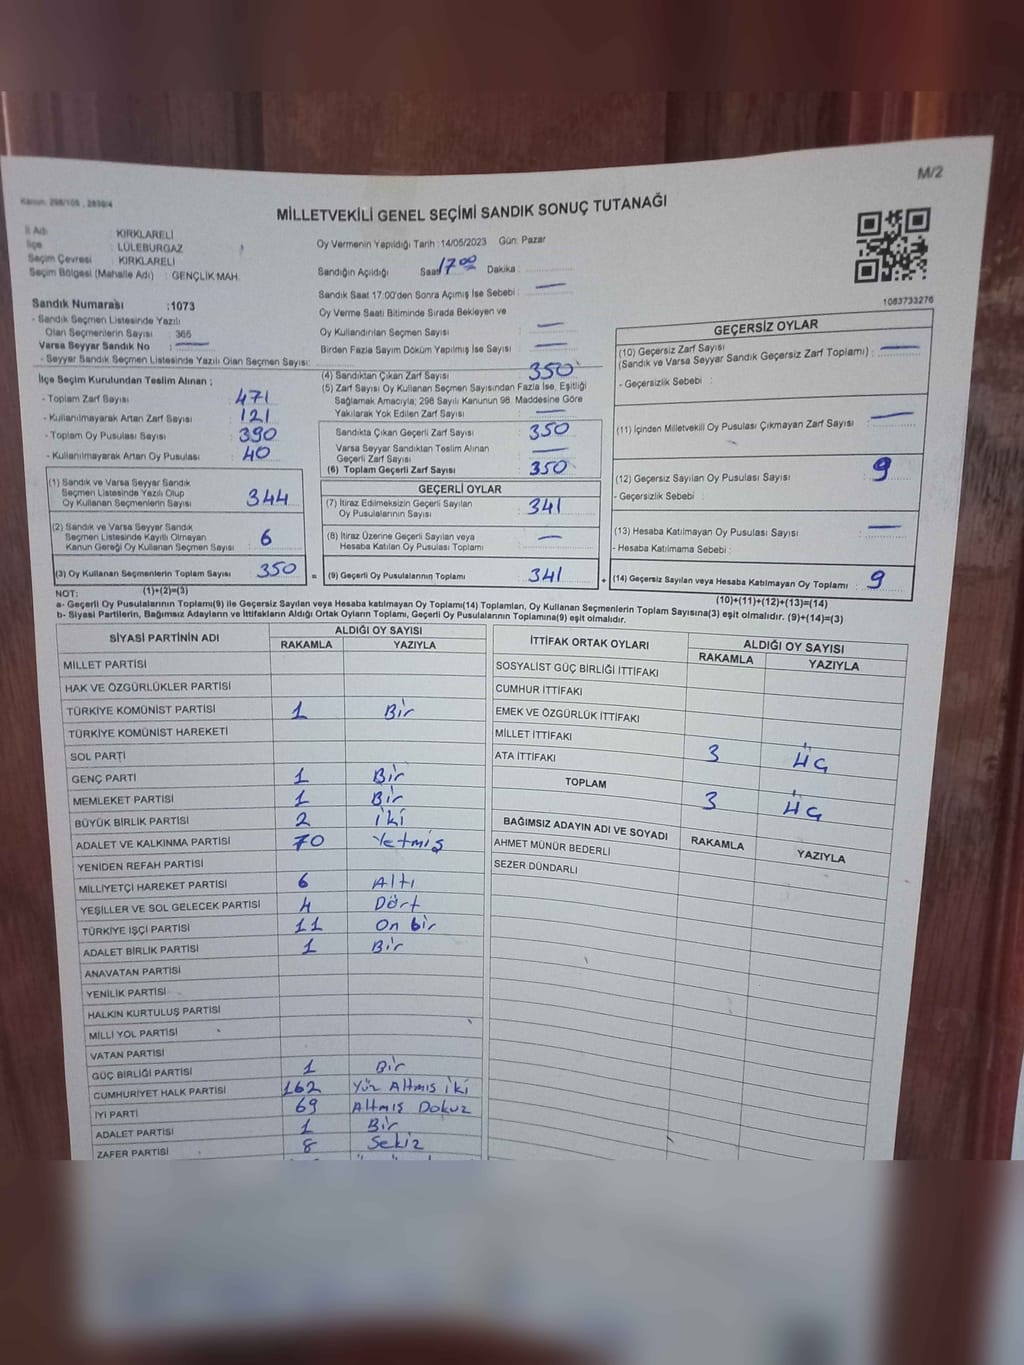 M/2
Kanun: 298/105 , 2839/4
MİLLETVEKİLİ GENEL SEÇİMİ SANDIK SONUÇ TUTANAĞI
İl Adı : KIRKLARELİ
İlçe : LÜLEBURGAZ
Seçim Çevresi : KIRKLARELİ
Seçim Bölgesi (Mahalle Adı) : GENÇLİK MAH.
Sandık Numarası :1073
- Sandık Seçmen Listesinde Yazılı
Olan Seçmenlerin Sayısı : 365
Varsa Seyyar Sandık No : —
- Seyyar Sandık Seçmen Listesinde Yazılı Olan Seçmen Sayısı:
Oy Vermenin Yapıldığı Tarih :14/05/2023 Gün: Pazar
Sandığın Açıldığı Saat 17 00 Dakika :
Sandık Saat 17:00'den Sonra Açımış İse Sebebi : —
Oy Verme Saati Bitiminde Sırada Bekleyen ve
Oy Kullandırılan Seçmen Sayısı : —
Birden Fazla Sayım Döküm Yapılmış İse Sayısı : —
1083733276
İlçe Seçim Kurulundan Teslim Alınan ;
- Toplam Zarf Sayısı : 471
- Kullanılmayarak Artan Zarf Sayısı : 121
- Toplam Oy Pusulası Sayısı : 390
- Kullanılmayarak Artan Oy Pusulası : 40
(1) Sandık ve Varsa Seyyar Sandık
Seçmen Listesinde Yazılı Olup
Oy Kullanan Seçmenlerin Sayısı : 344
(2) Sandık ve Varsa Seyyar Sandık
Seçmen Listesinde Kayıtlı Olmayan
Kanun Gereği Oy Kullanan Seçmen Sayısı : 6
(3) Oy Kullanan Seçmenlerin Toplam Sayısı : 350
(1)+(2)=(3)
(4) Sandıktan Çıkan Zarf Sayısı : 350
(5) Zarf Sayısı Oy Kullanan Seçmen Sayısından Fazla İse, Eşitliği
Sağlamak Amacıyla; 298 Sayılı Kanunun 98. Maddesine Göre
Yakılarak Yok Edilen Zarf Sayısı : —
Sandıkta Çıkan Geçerli Zarf Sayısı : 350
Varsa Seyyar Sandıktan Teslim Alınan
Geçerli Zarf Sayısı : —
(6) Toplam Geçerli Zarf Sayısı : 350
GEÇERLİ OYLAR
(7) İtiraz Edilmeksizin Geçerli Sayılan
Oy Pusulalarının Sayısı : 341
(8) İtiraz Üzerine Geçerli Sayılan veya
Hesaba Katılan Oy Pusulası Toplamı : —
= (9) Geçerli Oy Pusulalarının Toplamı : 341
GEÇERSİZ OYLAR
(10) Geçersiz Zarf Sayısı
(Sandık ve Varsa Seyyar Sandık Geçersiz Zarf Toplamı) : —
- Geçersizlik Sebebi :
(11) İçinden Milletvekili Oy Pusulası Çıkmayan Zarf Sayısı : —
(12) Geçersiz Sayılan Oy Pusulası Sayısı : 9
- Geçersizlik Sebebi :
(13) Hesaba Katılmayan Oy Pusulası Sayısı : —
- Hesaba Katılmama Sebebi :
+ (14) Geçersiz Sayılan veya Hesaba Katılmayan Oy Toplamı : 9
(10)+(11)+(12)+(13)=(14)
NOT:
a- Geçerli Oy Pusulalarının Toplamı(9) ile Geçersiz Sayılan veya Hesaba katılmayan Oy Toplamı(14) Toplamları, Oy Kullanan Seçmenlerin Toplam Sayısına(3) eşit olmalıdır. (9)+(14)=(3)
b- Siyasi Partilerin, Bağımsız Adayların ve İttifakların Aldığı Ortak Oyların Toplamı, Geçerli Oy Pusulalarının Toplamına(9) eşit olmalıdır.
SİYASİ PARTİNİN ADI ALDIĞI OY SAYISI
RAKAMLA YAZIYLA
MİLLET PARTİSİ
HAK VE ÖZGÜRLÜKLER PARTİSİ
TÜRKİYE KOMÜNİST PARTİSİ 1 Bir
TÜRKİYE KOMÜNİST HAREKETİ
SOL PARTİ
GENÇ PARTİ 1 Bir
MEMLEKET PARTİSİ 1 Bir
BÜYÜK BİRLİK PARTİSİ 2 iki
ADALET VE KALKINMA PARTİSİ 70 Yetmiş
YENİDEN REFAH PARTİSİ
MİLLİYETÇİ HAREKET PARTİSİ 6 Altı
YEŞİLLER VE SOL GELECEK PARTİSİ 4 Dört
TÜRKİYE İŞÇİ PARTİSİ 11 On bir
ADALET BİRLİK PARTİSİ 1 Bir
ANAVATAN PARTİSİ
YENİLİK PARTİSİ
HALKIN KURTULUŞ PARTİSİ
MİLLİ YOL PARTİSİ
VATAN PARTİSİ
GÜÇ BİRLİĞİ PARTİSİ 1 Bir
CUMHURİYET HALK PARTİSİ 162 Yüz Altmış iki
İYİ PARTİ 69 Altmış Dokuz
ADALET PARTİSİ 1 Bir
ZAFER PARTİSİ 8 Sekiz
İTTİFAK ORTAK OYLARI ALDIĞI OY SAYISI
RAKAMLA YAZIYLA
SOSYALİST GÜÇ BİRLİĞİ İTTİFAKI
CUMHUR İTTİFAKI
EMEK VE ÖZGÜRLÜK İTTİFAKI
MİLLET İTTİFAKI 3 Üç
ATA İTTİFAKI
TOPLAM 3 Üç
BAĞIMSIZ ADAYIN ADI VE SOYADI RAKAMLA YAZIYLA
AHMET MÜNÜR BEDERLİ
SEZER DÜNDARLI